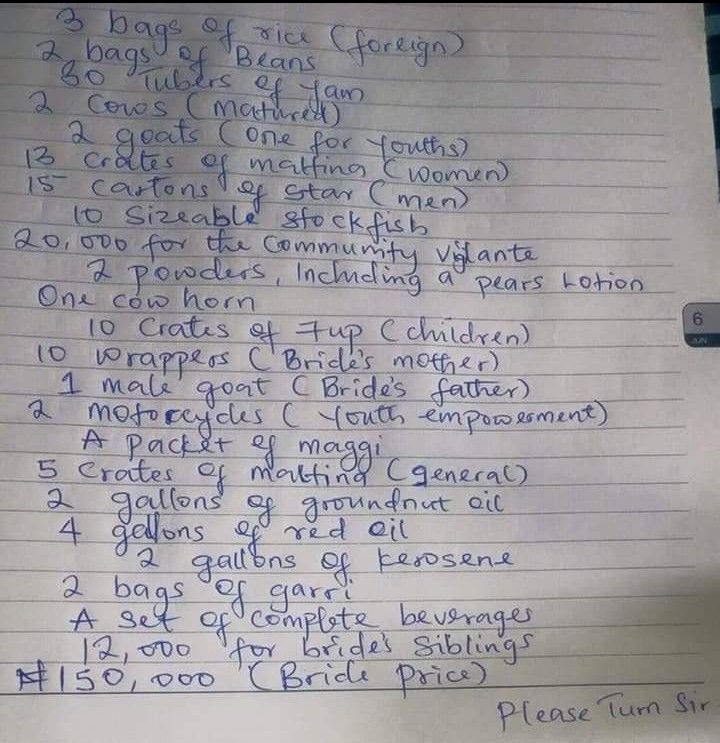 3 bags of rice (foreign)
2 bags of Beans
30 Tubers of Yam
2 Cows (matured)
2 goats (one for Youths)
13 Crates of maltina (women)
15 Cartons of star (men)
10 Sizeable stockfish
20,000 for the Community vigilante
2 powders, Including a pears Lotion
One cow horn
10 Crates of 7up (children)
10 wrappers (Bride's mother)
1 male goat (Bride's father)
2 motorcycles (Youth empowerment)
A packet of maggi
5 Crates of maltina (general)
2 gallons of groundnut oil
4 gallons of red oil
2 gallons of kerosene
2 bags of garri
A set of complete beverages
12,000 for bride's siblings
₦150,000 (Bride price)
Please Turn Sir
6
JUN